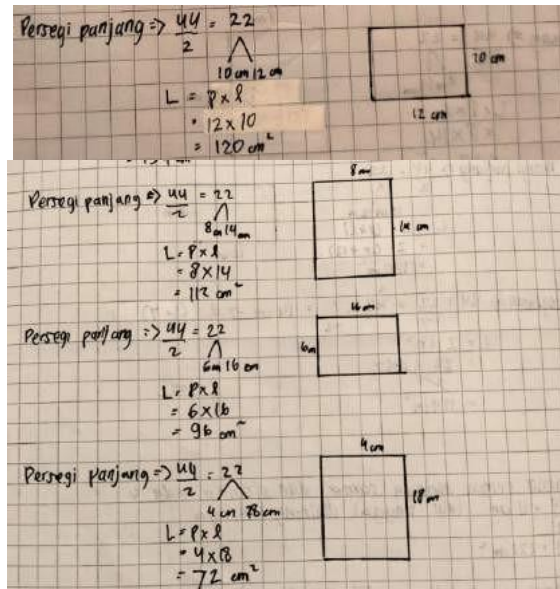 Persegi panjang => 44/2 = 22
10 cm 12 cm
L = p x l
= 12 x 10
= 120 cm²
10 cm
12 cm
Persegi panjang => 44/2 = 22
8 cm 14 cm
L = p x l
= 8 x 14
= 112 cm²
8 cm
14 cm
Persegi panjang => 44/2 = 22
6 cm 16 cm
L = p x l
= 6 x 16
= 96 cm²
6 cm
Persegi panjang => 44/2 = 22
4 cm 18 cm
L = p x l
= 4 x 18
= 72 cm²
4 cm
18 cm